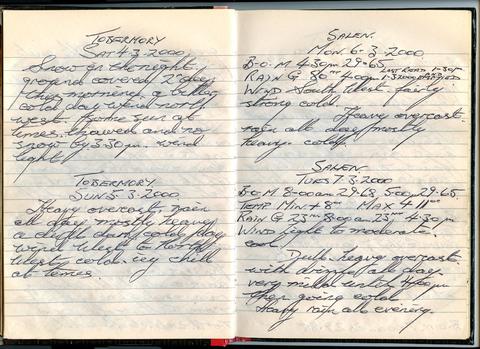 TOBERMORY
SAT 4.3.2000
Snow in the night
ground covered 2" deep
this morning a bitter
cold day wind north
west. Some sun at
times. thawed and no
snow by 3.30pm. wind
light
TOBERMORY
SUN 5.3.2000
Heavy overcast, rain
all day mostly heavy
a dull dark cold day
wind West to North
West cold. icy chill
at times.
SALEN.
MON. 6.3.2000
B.O.M 4.30pm 29.65
RAIN G 80mm 4.00pm
WIND South West fairly
strong cold.
Heavy overcast.
rain all day mostly
heavy. cold.
SALEN.
TUES 7.3.2000
B.O.M 8.00am 29.68, 5.00pm 29.65
TEMP MIN. + 8° MAX + 11°
RAIN G 23mm 8.00am 23mm 4.30pm
WIND light to moderate.
cool.
Dull. heavy overcast.
with all day.
very mild until 4.00pm
then going cold.
Heavy rain all evening.